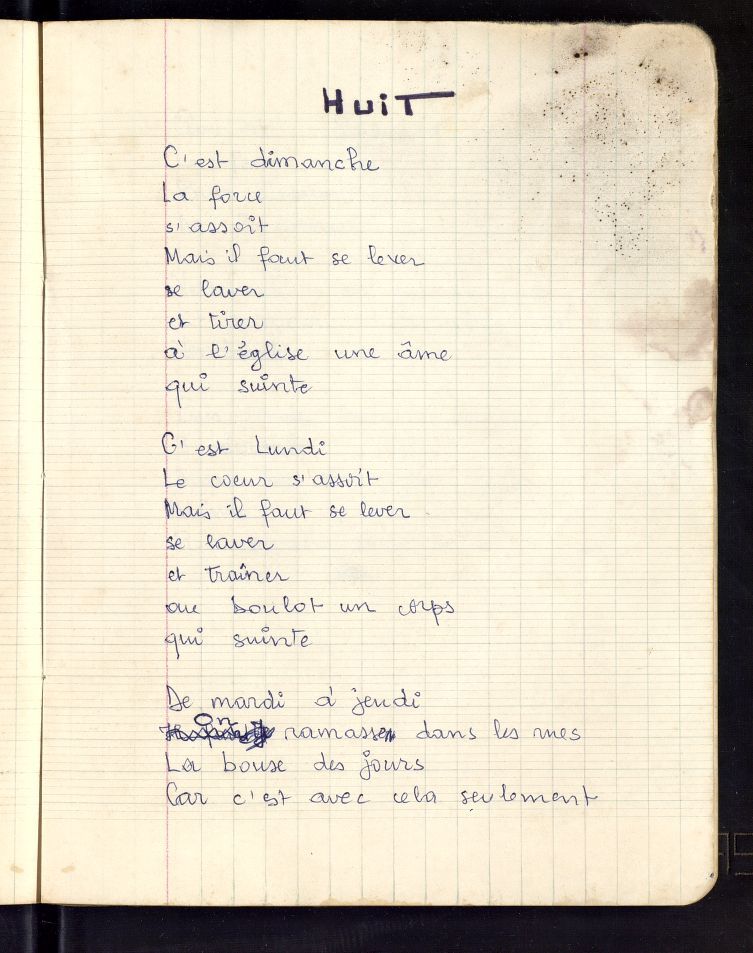 HUiT
C'est dimanche
La force
s'assoît
Mais il faut se lever
se laver
et tirer
à l'église une âme
qui suinte
C'est Lundi
Le coeur s'assoit
Mais il faut se lever
se laver
et traîner
au boulot un corps
qui suinte
De mardi à jeudi
On ramasse dans les rues
La bouse des jours
Car c'est avec cela seulement